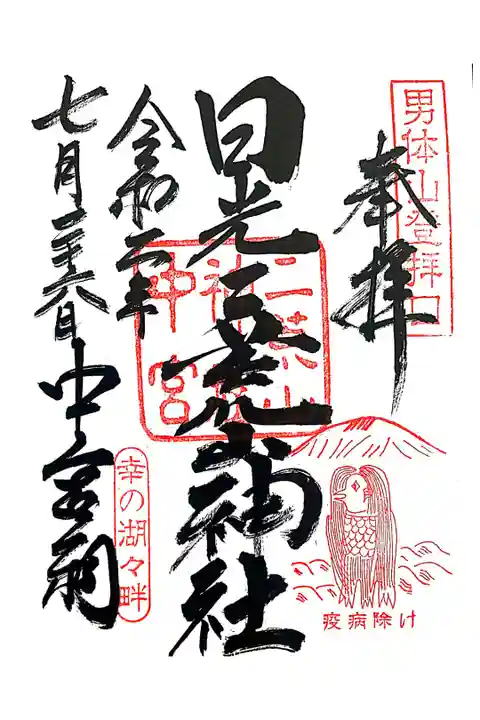 男体山登拝口
奉拝
日光二荒山神社
二荒山
神社
中宮
令和二年
七月二十六日
中宮祠
幸の湖々畔
疫病除け